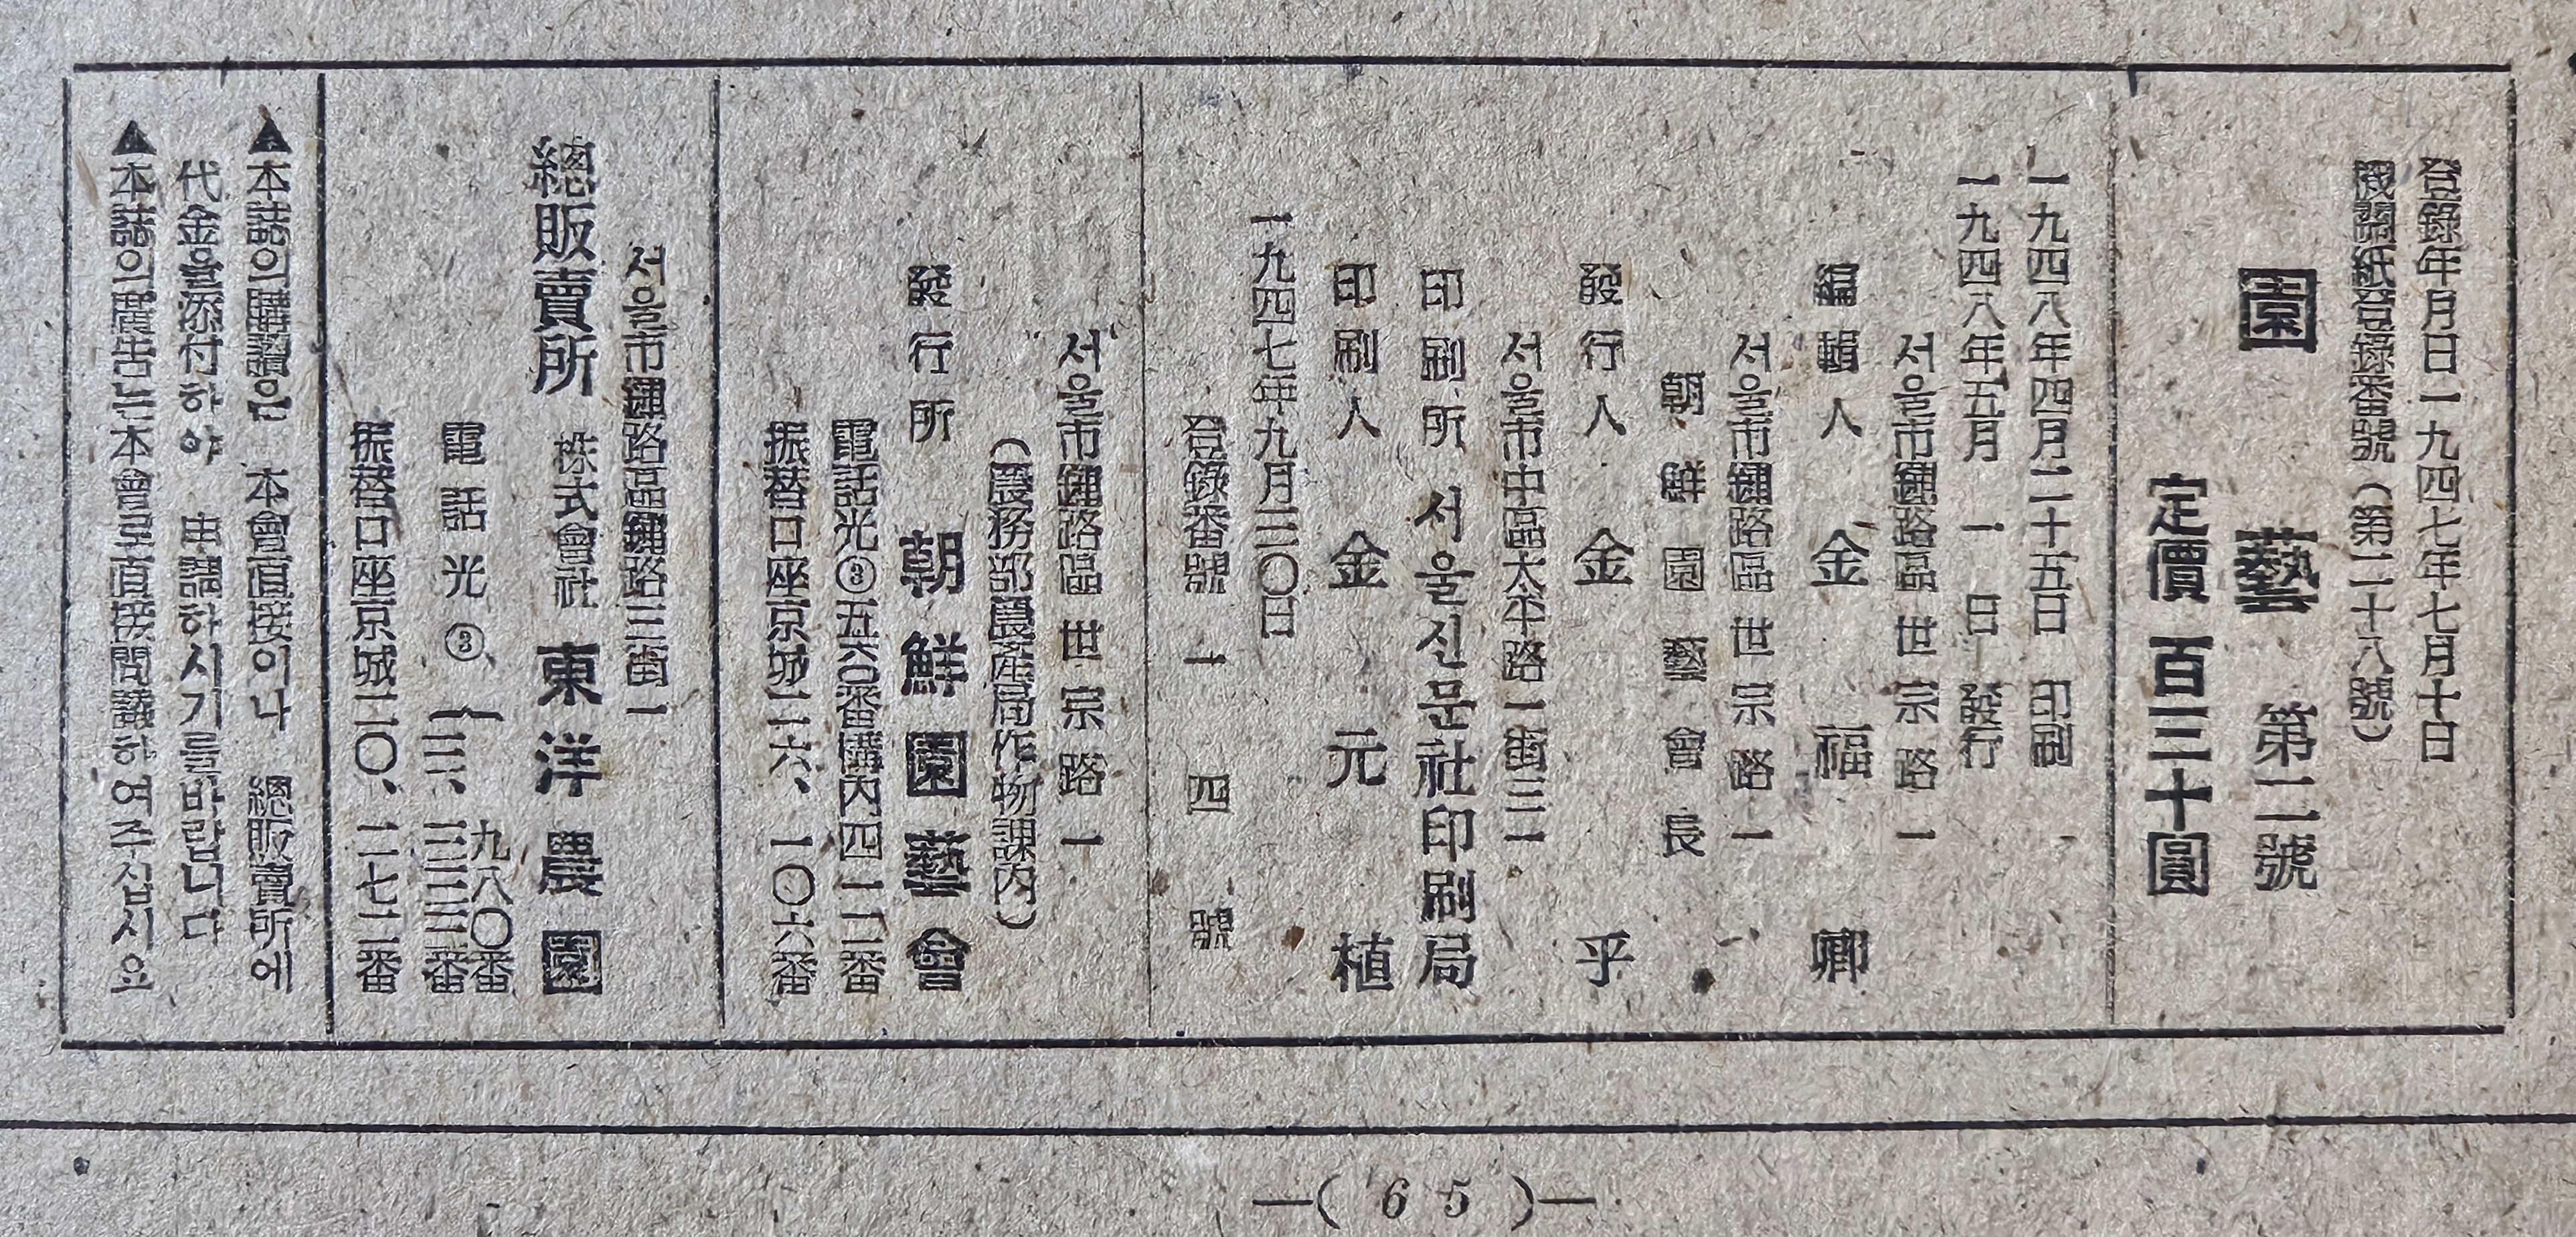 登錄年月日一九四七年七月十日
機關紙登錄番號(第二十八號)
園藝 第二號
定價 百三十圓
一九四八年四月二十五日 印刷
一九四八年五月 一 日 發行
서울市鍾路區世宗路一
編輯人 金福卿
서울市鍾路區世宗路一
朝鮮園藝會長
發行人 金乎
서울市中區太平路一街三一
印刷所 서울신문社印刷局
印刷人 金元植
一九四七年九月三〇日
登錄番號 一四號
서울市鍾路區世宗路一
(農務部農産局作物課內)
發行所 朝鮮園藝會
電話光③五六〇番構內四一二番
振替口座京城二六、一〇六番
서울市鍾路區鍾路三街一
總販賣所 株式會社 東洋農園
電話光③、一 九八〇番
一三三、三三三三番
振替口座京城二〇、二七二番
▲本誌의購讀은 本會直接이나 總販賣所에
代金을添付하야 申請하시기를바랍니다
▲本誌의廣告는本會로直接問議하여주십시요
—( 65 )—